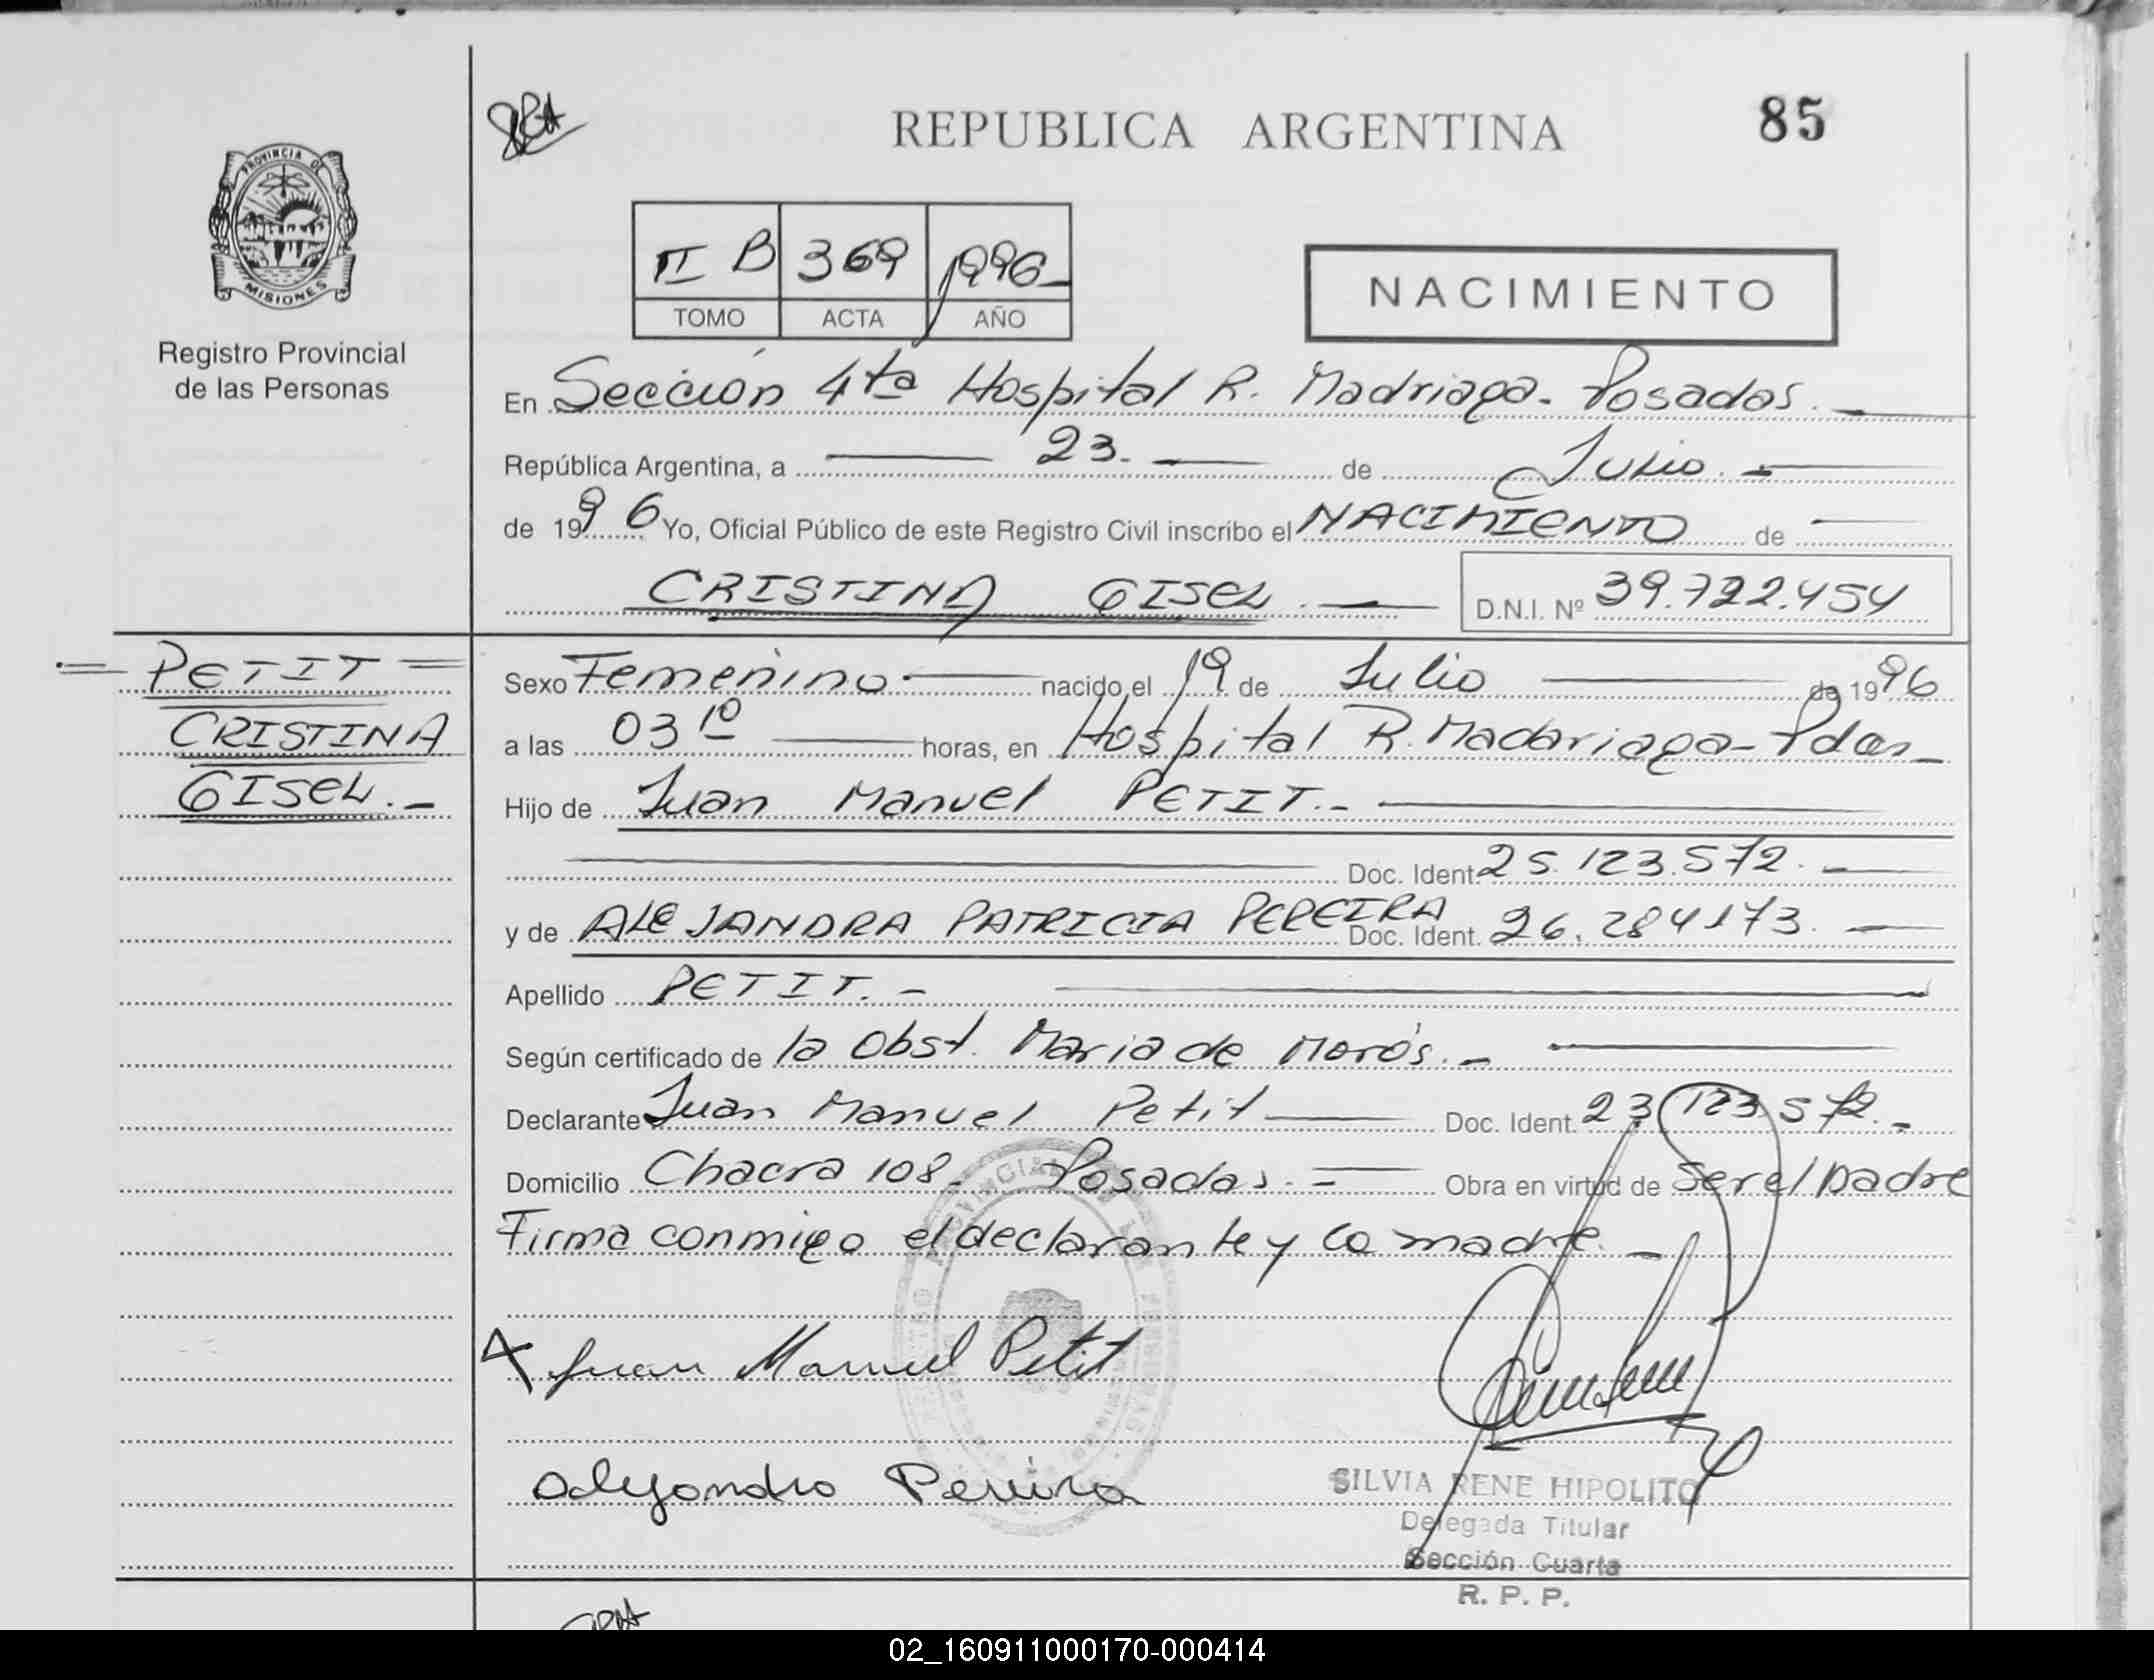 REPUBLICA ARGENTINA
85
PROVINCIA DE
MISIONES
Registro Provincial
de las Personas
II B 369 1996
TOMO ACTA AÑO
NACIMIENTO
En Sección 4ta Hospital R. Madriaga - Posadas.
República Argentina, a 23. de Julio.
de 1996 Yo, Oficial Público de este Registro Civil inscribo el NACIMIENTO de
CRISTINA GISEL. D.N.I. Nº 39.722.454
PETIT
CRISTINA
GISEL.
Sexo Femenino nacido el 19 de Julio de 1996
a las 03 10 horas, en Hospital R. Madariaga - Pdas
Hijo de Juan Manuel PETIT.
Doc. Ident. 25.123.572.
y de ALEJANDRA PATRICIA PEREIRA Doc. Ident. 26.284173.
Apellido PETIT.
Según certificado de la Obst. Maria de Morós.
Declarante Juan Manuel Petit Doc. Ident. 23 123.572.
Domicilio Chacra 108 - Posadas. Obra en virtud de ser el padre
Firma conmigo el declarante y la madre.
Juan Manuel Petit
Alejandra Pereira
SILVIA RENE HIPOLITO
Delegada Titular
Sección Cuarta
R. P. P.
02_160911000170-000414